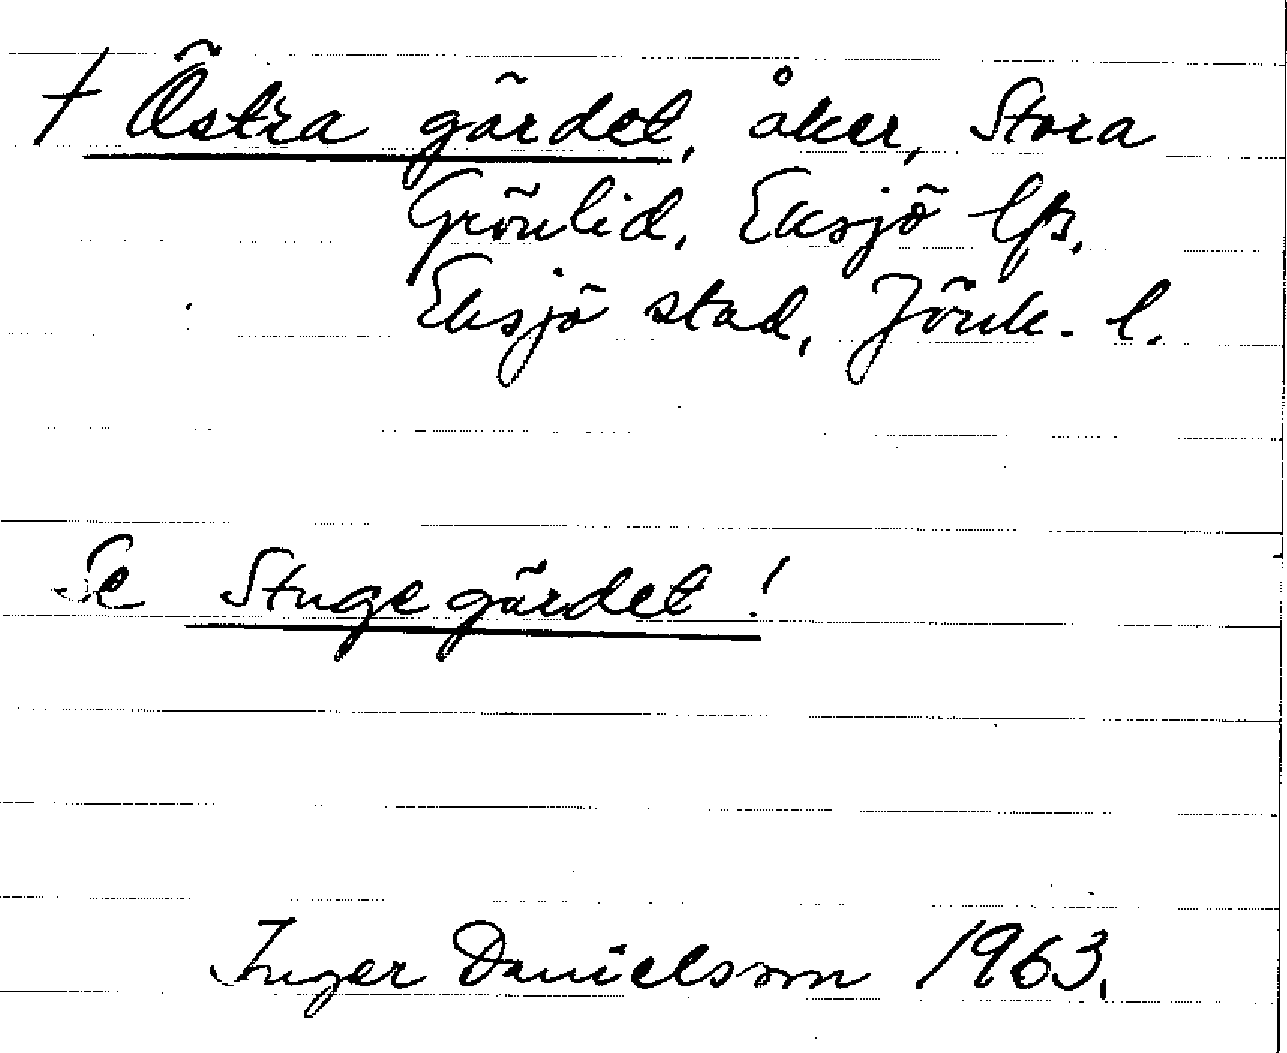 † Östra gärdet, åker, Stora
Grönlid, Eksjö lfs,
Eksjö stad, Jönk. l.
Se Stugegärdet!
Inger Danielsson 1963.